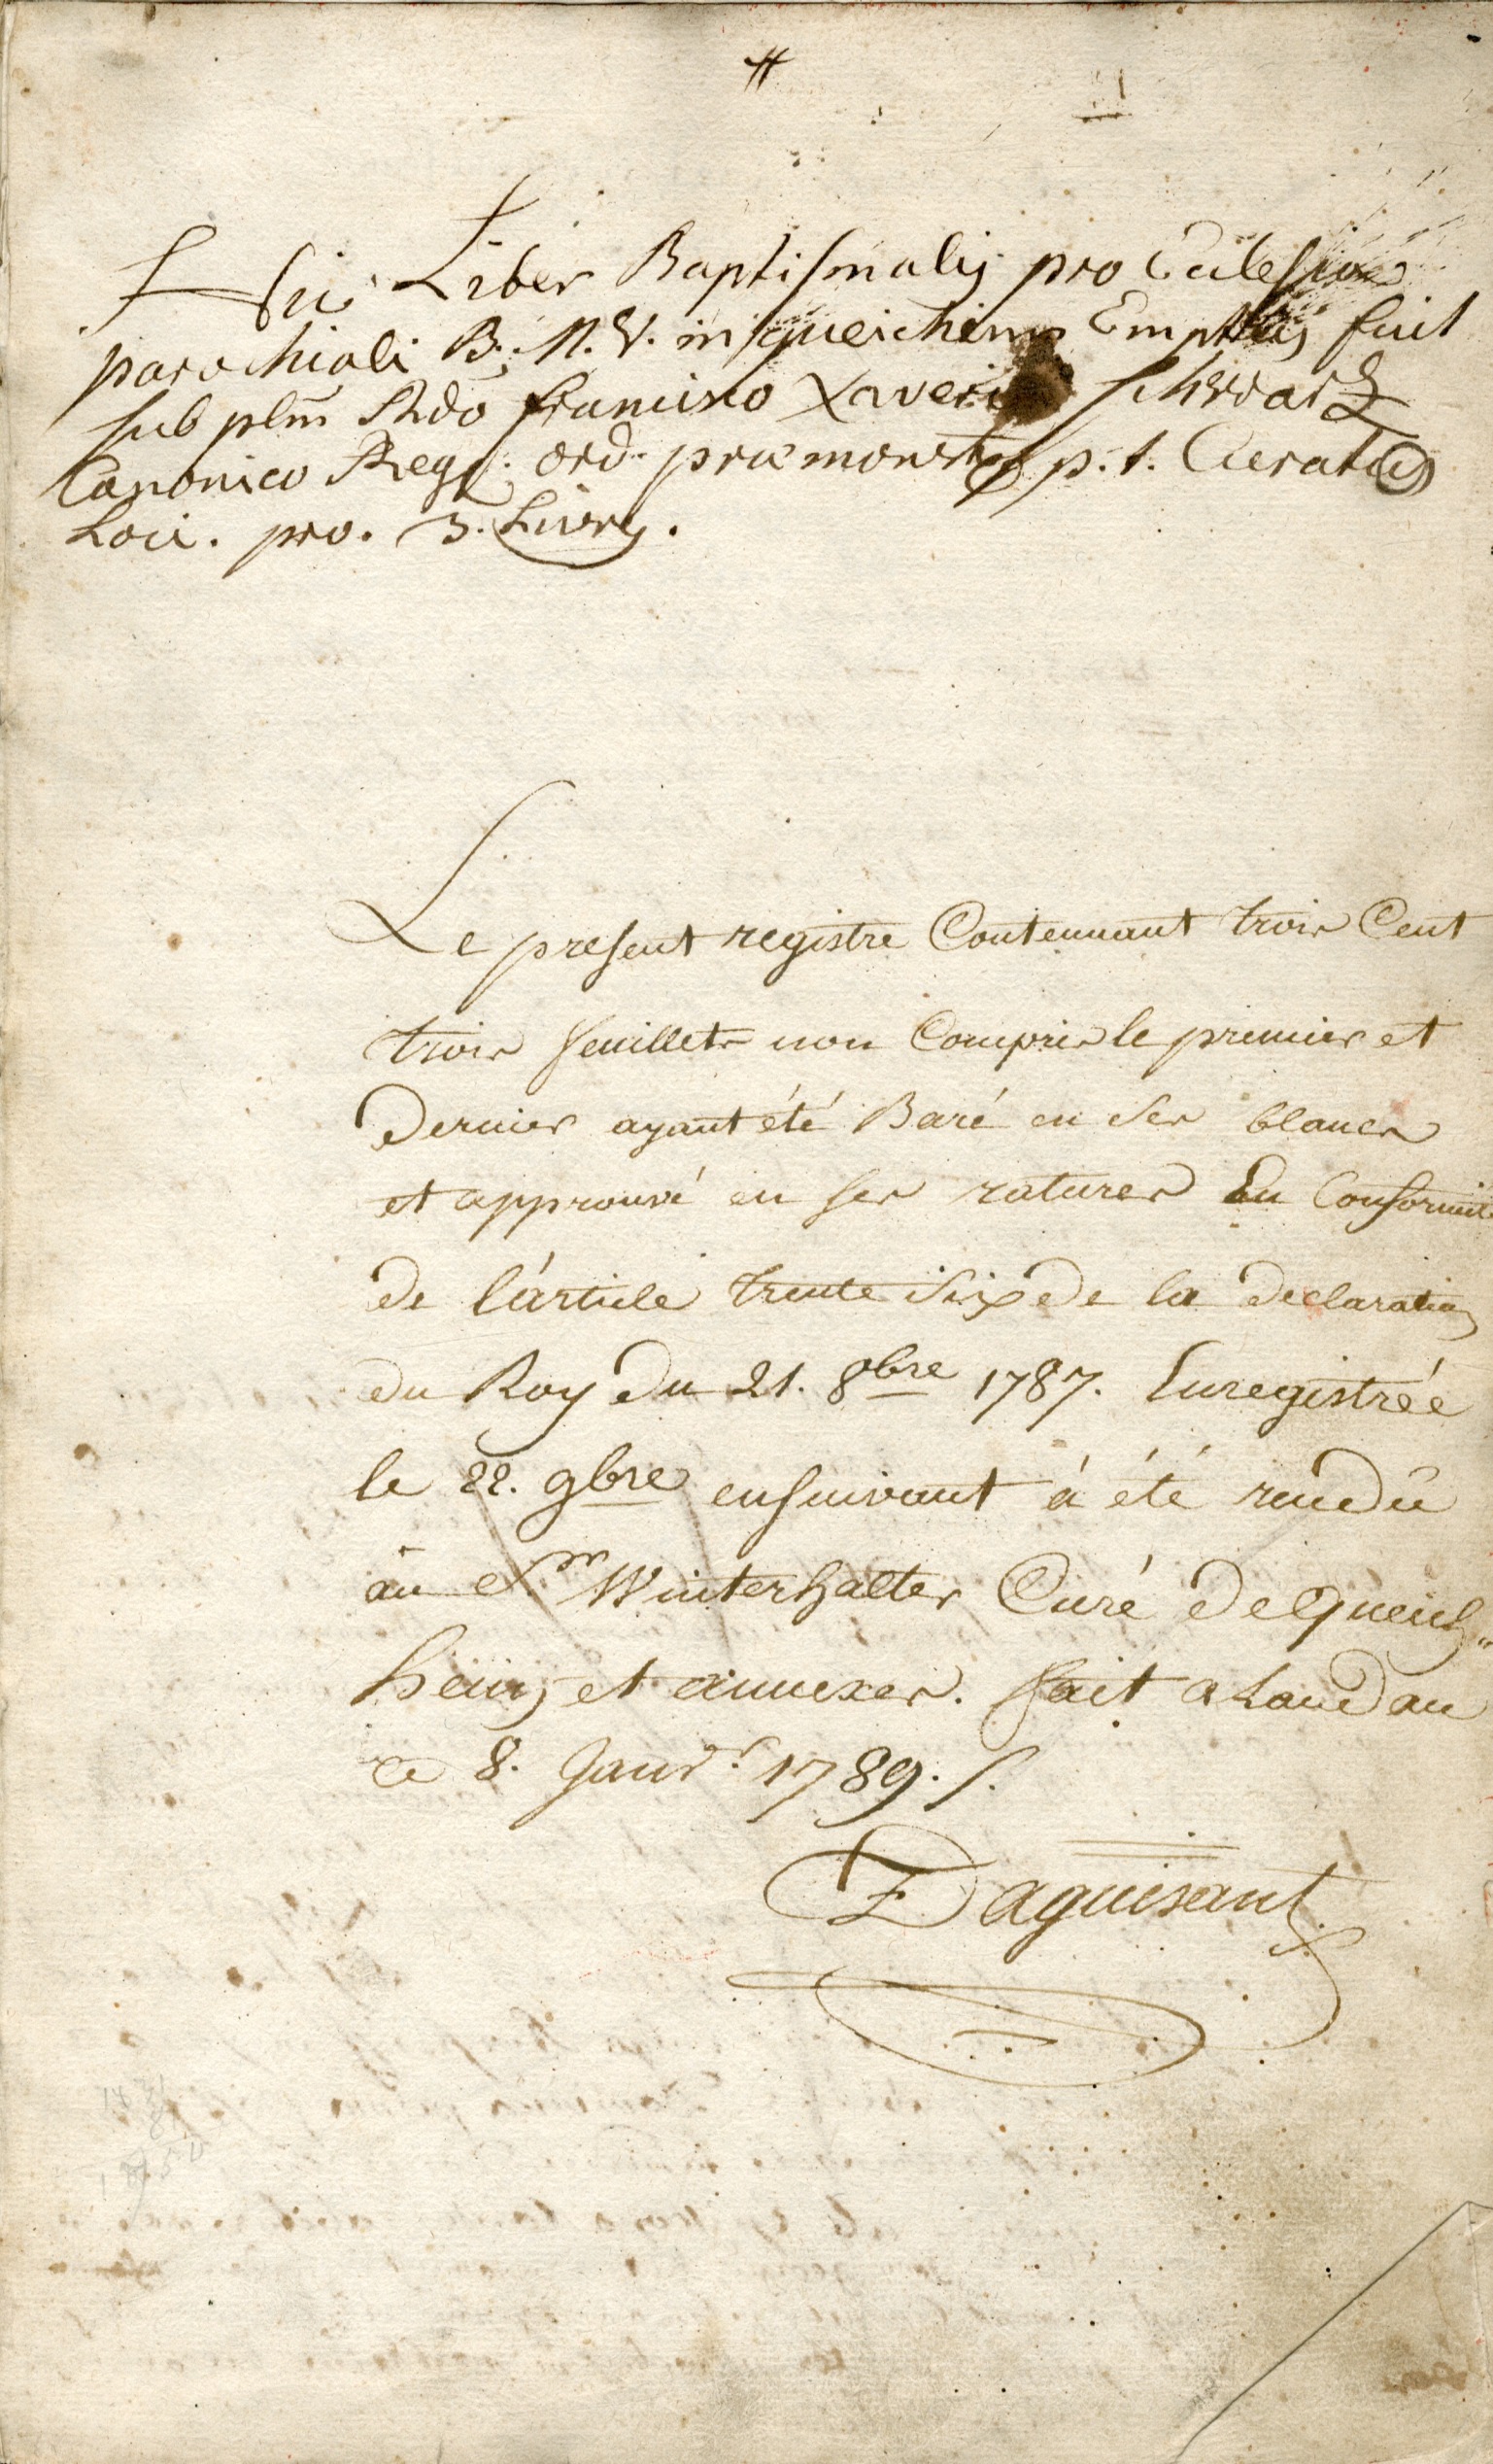 Hic Liber Baptismalis pro Ecclesia
parochiali B. M. V. in queichem Emptus fuit
sub plm Rdo Francisco Xaverio Schwartz
Canonico Reg. ord. præmonst. p. t. Curatus
Loci. pro. 3. Livres.
Le present registre Contennant trois Cent
trois feuillets non Compris le premier et
Dernier ayant été Baré en ses blancs
et approuvé en ses ratures En Conformité
de l'article trente Six de la declaration
du Roy du 21. 8bre 1787. Enregistrée
le 22. 9bre ensuivant à été rendû
au Sr Winterhalter Curé de queich"
heim et annexes. fait a Landau
ce 8. Janvr. 1789. /.
Daguisant